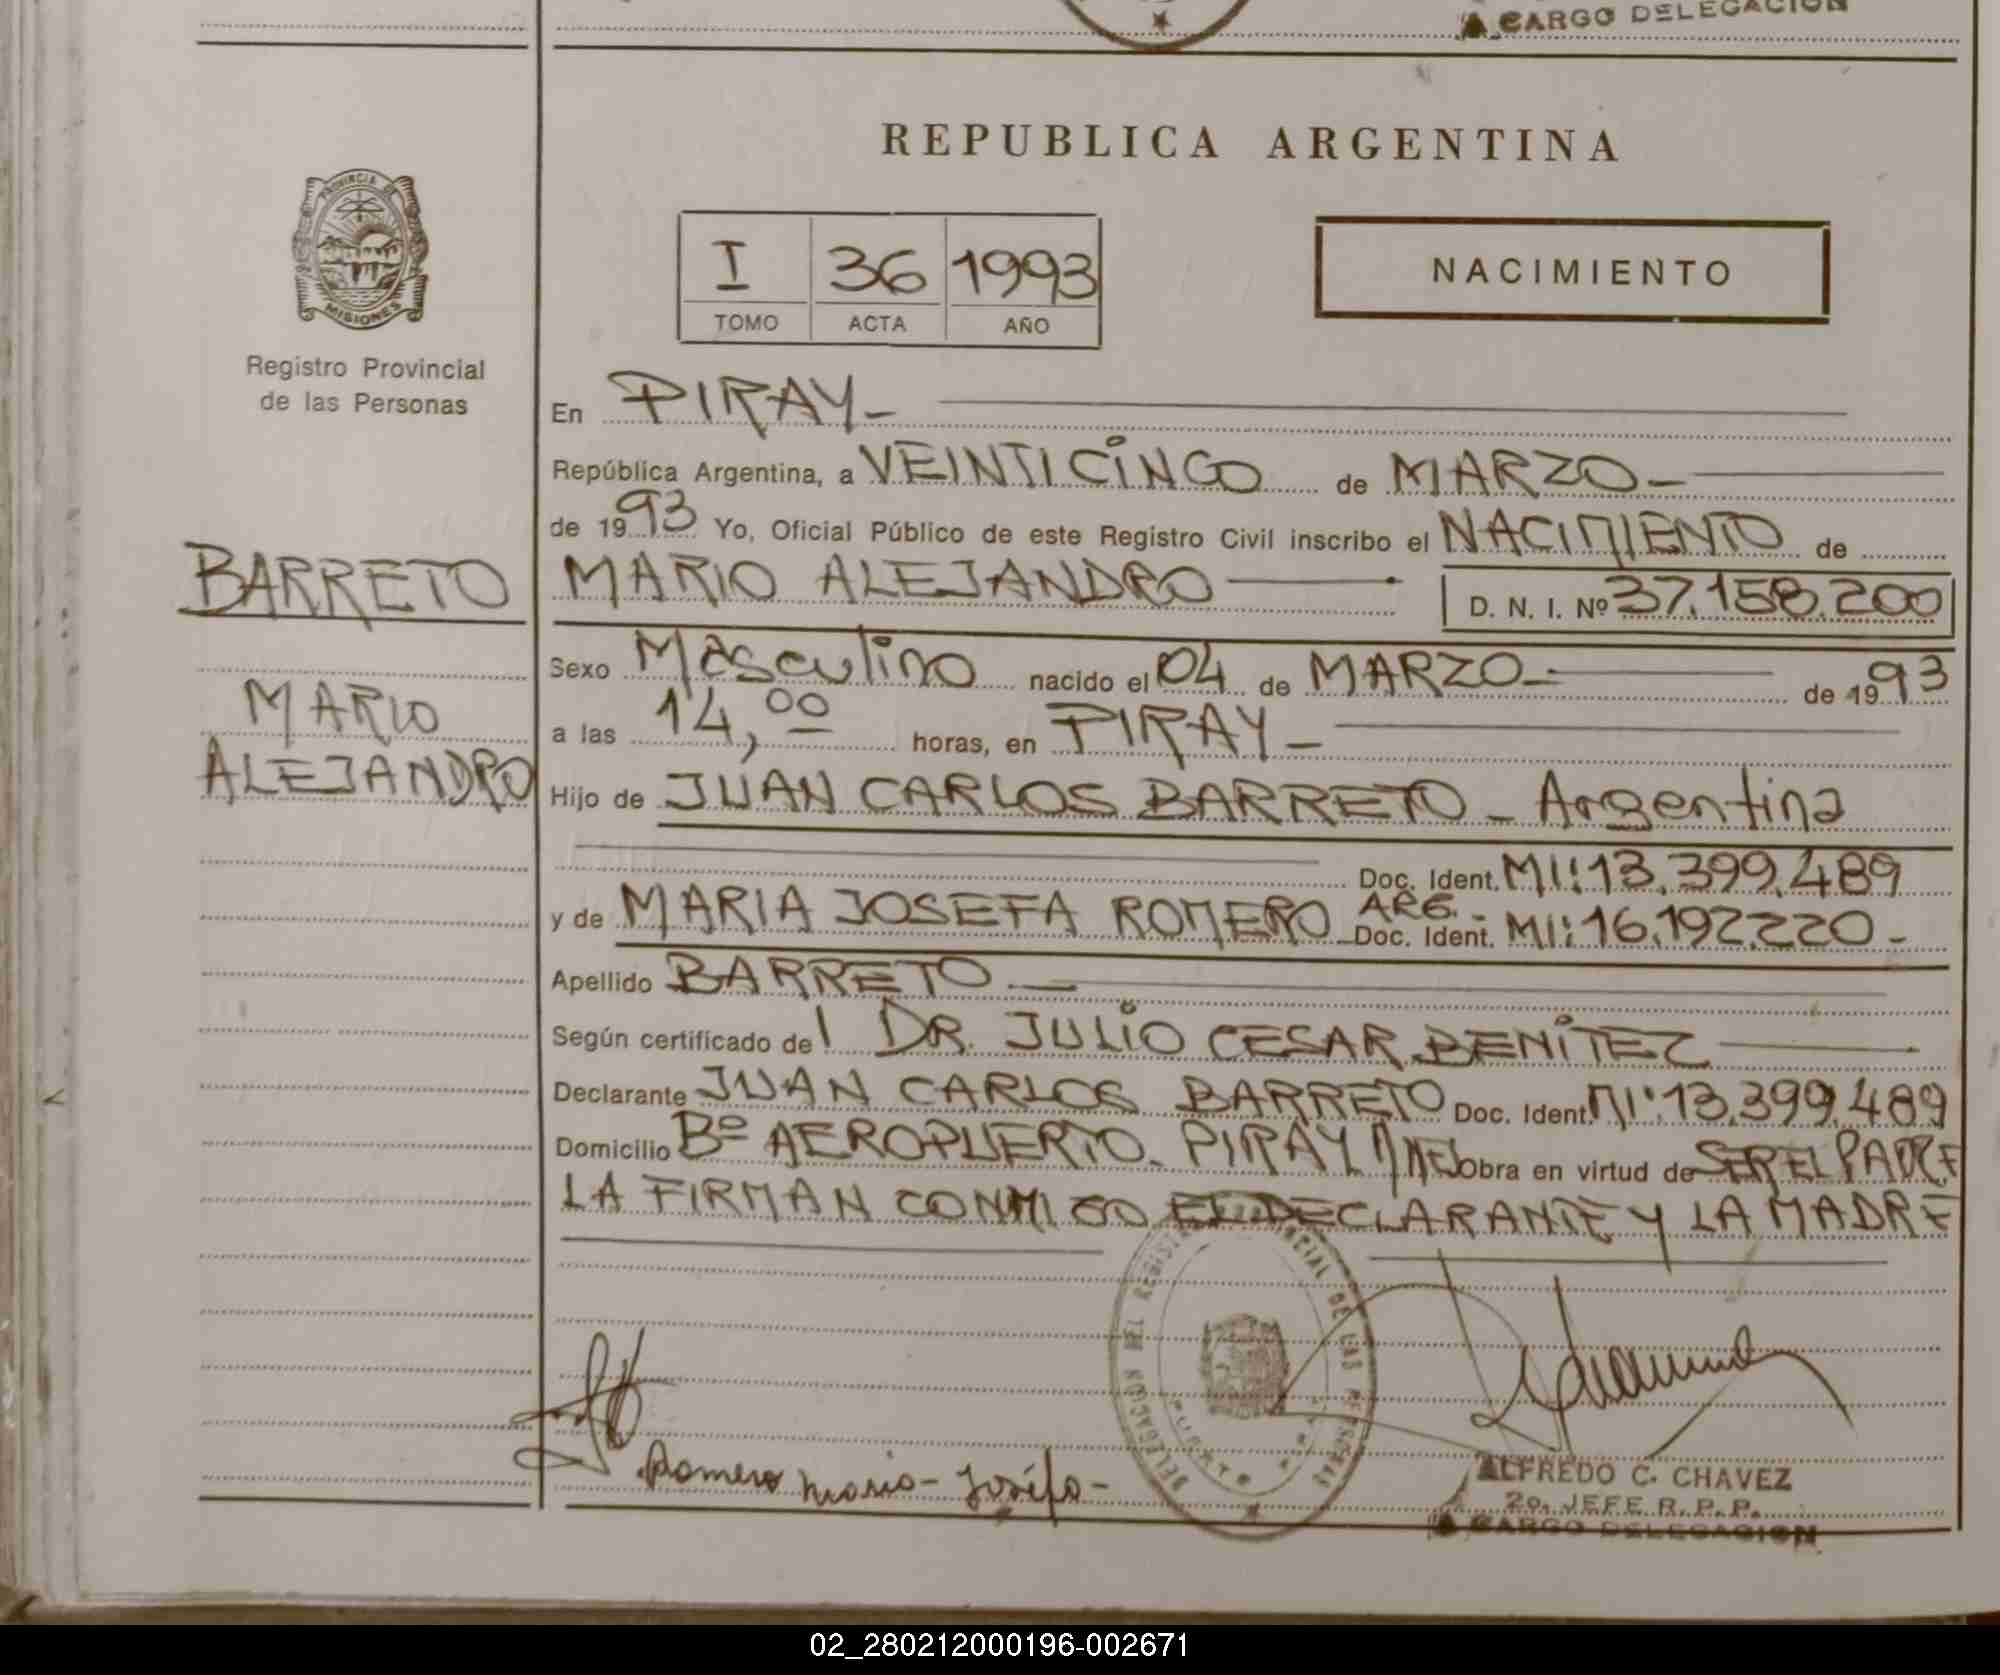 A CARGO DELEGACION
REPUBLICA ARGENTINA
PROVINCIA DE
MISIONES
Registro Provincial
de las Personas
I 36 1993
TOMO ACTA AÑO
NACIMIENTO
En PIRAY-
República Argentina, a VEINTICINCO de MARZO-
de 1993 Yo, Oficial Público de este Registro Civil inscribo el NACIMIENTO de
BARRETO
MARIO ALEJANDRO D. N. I. Nº 37.158.200
MARIO
ALEJANDRO
Sexo Masculino nacido el 04 de MARZO- de 1993
a las 14,00 horas, en PIRAY-
Hijo de JUAN CARLOS BARRETO - Argentina
Doc. Ident. MI: 13.399.489
y de MARIA JOSEFA ROMERO ARG.- Doc. Ident. MI: 16.192.220-
Apellido BARRETO-
Según certificado del DR. JULIO CESAR BENITEZ
Declarante JUAN CARLOS BARRETO Doc. Ident. MI: 13.399.489
Domicilio Bº AEROPUERTO- PIRAY MNES Obra en virtud de SER EL PADRE
LA FIRMAN CONMIGO EL DECLARANTE Y LA MADRE
DELEGACION DEL REGISTRO PROVINCIAL DE LAS PERSONAS
PUERTO
Romero Maria- Joséfa-
ALFREDO C. CHAVEZ
2o. JEFE R. P. P.
A CARGO DELEGACION
02_280212000196-002671